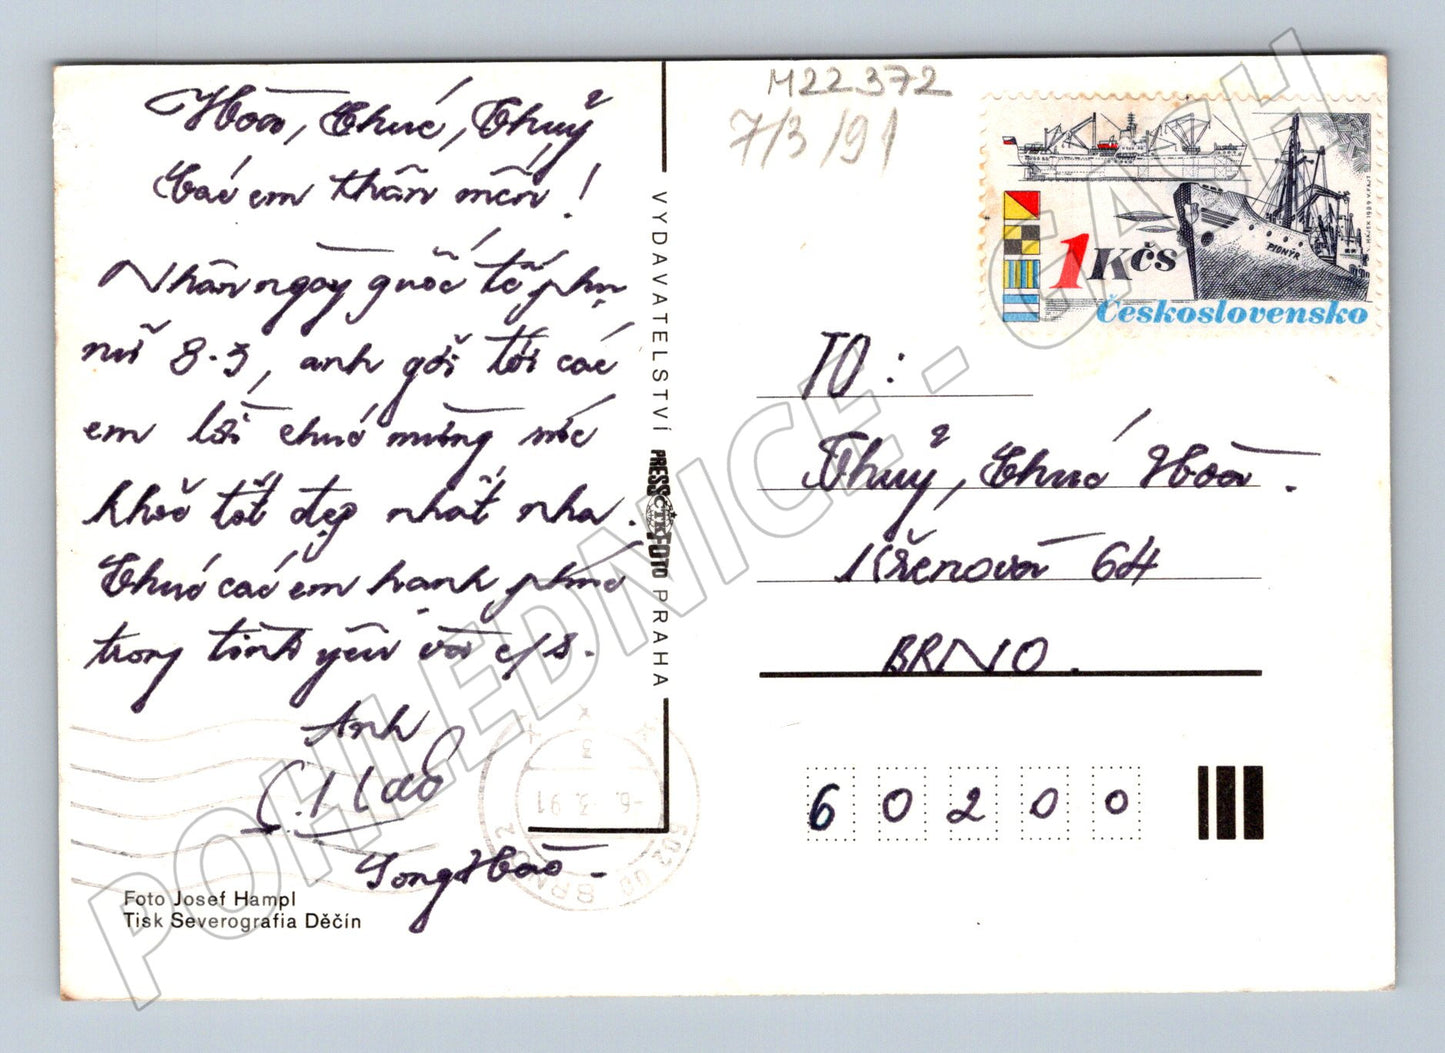 Hoà, Chúc, Thuỷ
Các em thân mến!
Nhân ngày quốc tế phụ
nữ 8.3, anh gởi tới các
em lời chúc mừng sức
khoẻ tốt đẹp nhất nha.
Chúc các em hạnh phúc
trong tình yêu và c/s.
Anh
Tong Hào -
Foto Josef Hampl
Tisk Severografia Děčín
VYDAVATELSTVÍ PRESSFOTO PRAHA
ČTK
M22372
7/3/91
1 Kčs
Československo
PIONÝR
TO:
Thuỷ, Chúc Hoà.
Křenová 64
BRNO.
60200
-6. 3. 91
602 00 BRNO 2
POHLEDNICE - GACH